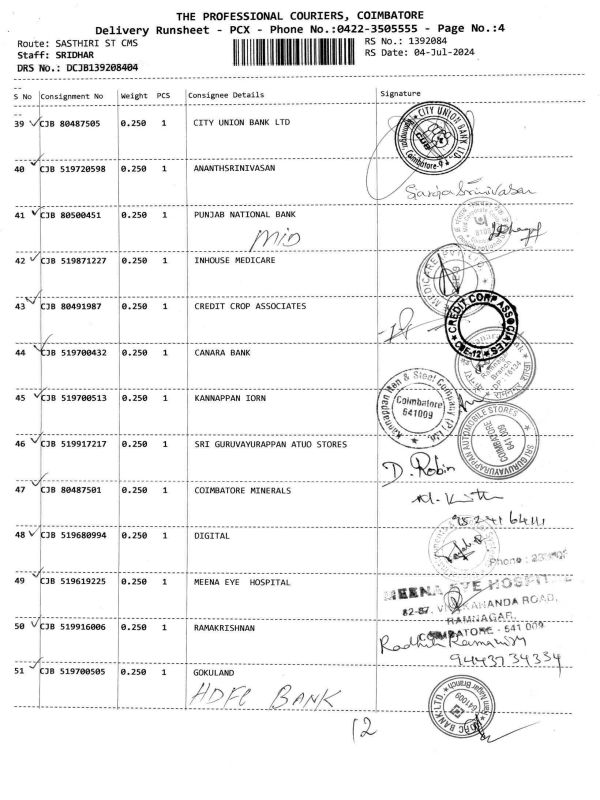 THE PROFESSIONAL COURIERS, COIMBATORE
Delivery Runsheet - PCX - Phone No.:0422-3505555 - Page No.:4
Route: SASTHIRI ST CMS
RS No.: 1392084
Staff: SRIDHAR
RS Date: 04-Jul-2024
DRS No.: DCJB139208404
S No Consignment No Weight PCS Consignee Details Signature
39 CJB 80487505 0.250 1 CITY UNION BANK LTD
CITY UNION BANK LTD.
CUB
Coimbatore-9
40 CJB 519720598 0.250 1 ANANTHSRINIVASAN
41 CJB 80500451 0.250 1 PUNJAB NATIONAL BANK
MID
42 CJB 519871227 0.250 1 INHOUSE MEDICARE
MEDICARE PVT LTD
43 CJB 80491987 0.250 1 CREDIT CROP ASSOCIATES
CREDIT CORP ASSOCIATES
CBE-12
44 CJB 519700432 0.250 1 CANARA BANK
Branch
DP - 16134
45 CJB 519700513 0.250 1 KANNAPPAN IORN
Kannappan Iron & Steel Company (P) Ltd.
Coimbatore
641009
46 CJB 519917217 0.250 1 SRI GURUVAYURAPPAN ATUO STORES
SRI GURUVAYURAPPAN AUTOMOBILE STORES
COIMBATORE
641 009
D. Robin
47 CJB 80487501 0.250 1 COIMBATORE MINERALS
48 CJB 519680994 0.250 1 DIGITAL
Phone :
49 CJB 519619225 0.250 1 MEENA EYE HOSPITAL
MEENA EYE HOSPITAL
82-87. VIVEKANANDA ROAD,
RAMNAGAR,
COIMBATORE - 641 009
50 CJB 519916006 0.250 1 RAMAKRISHNAN
9443734334
51 CJB 519700505 0.250 1 GOKULAND
HDFC BANK
HDFC BANK LTD.
641009
12